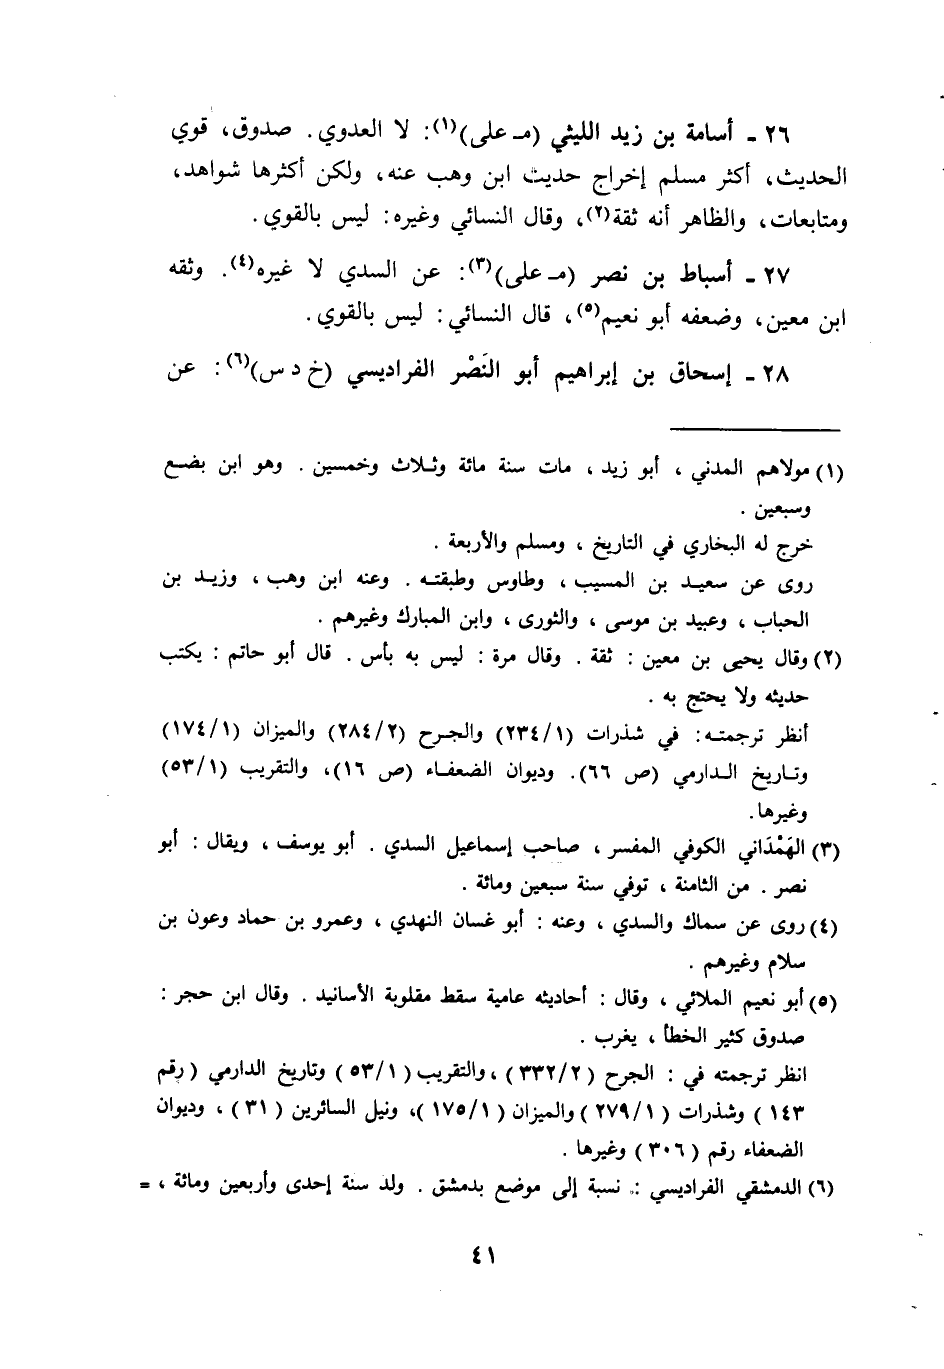 ٢٦ ـ أسامة بن زيد الليثي (مـ على)(١): لا العدوي. صدوق، قوي
الحديث، أكثر مسلم إخراج حديث ابن وهب عنه، ولكن أكثرها شواهد،
ومتابعات، والظاهر أنه ثقة(٢)، وقال النسائي وغيره: ليس بالقوي.
٢٧ ـ أسباط بن نصر (مـ على)(٣): عن السدي لا غيره(٤). وثقه
ابن معين، وضعفه أبو نعيم(٥)، قال النسائي: ليس بالقوي.
٢٨ ـ إسحاق بن إبراهيم أبو النَضْر الفراديسي (خ د س)(٦): عن
(١) مولاهم المدني ، أبو زيد ، مات سنة مائة وثلاث وخمسين . وهو ابن بضع
وسبعين .
خرج له البخاري في التاريخ ، ومسلم والأربعة .
روى عن سعيد بن المسيب ، وطاوس وطبقته . وعنه ابن وهب ، وزيد بن
الحباب ، وعبيد بن موسى ، والثورى ، وابن المبارك وغيرهم .
(٢) وقال يحيى بن معين : ثقة . وقال مرة : ليس به بأس . قال أبو حاتم : يكتب
حديثه ولا يحتج به .
أنظر ترجمته: في شذرات (٢٣٤/١) والجرح (٢٨٤/٢) والميزان (١٧٤/١)
وتاريخ الدارمي (ص ٦٦). وديوان الضعفاء (ص ١٦)، والتقريب (٥٣/١)
وغيرها.
(٣) الهَمْدَاني الكوفي المفسر ، صاحب إسماعيل السدي . أبو يوسف ، ويقال : أبو
نصر . من الثامنة ، توفي سنة سبعين ومائة .
(٤) روى عن سماك والسدي ، وعنه : أبو غسان النهدي ، وعمرو بن حماد وعون بن
سلام وغيرهم .
(٥) أبو نعيم الملائي ، وقال : أحاديثه عامية سقط مقلوبة الأسانيد . وقال ابن حجر :
صدوق كثير الخطأ ، يغرب .
انظر ترجمته في : الجرح ( ٣٣٢/٢ ) ، والتقريب ( ٥٣/١ ) وتاريخ الدارمي ( رقم
١٤٣ ) وشذرات ( ٢٧٩/١ ) والميزان ( ١٧٥/١ )، ونيل السائرين ( ٣١ ) ، وديوان
الضعفاء رقم ( ٣٠٦ ) وغيرها .
(٦) الدمشقي الفراديسي : نسبة إلى موضع بدمشق . ولد سنة إحدى وأربعين ومائة ، =
٤١